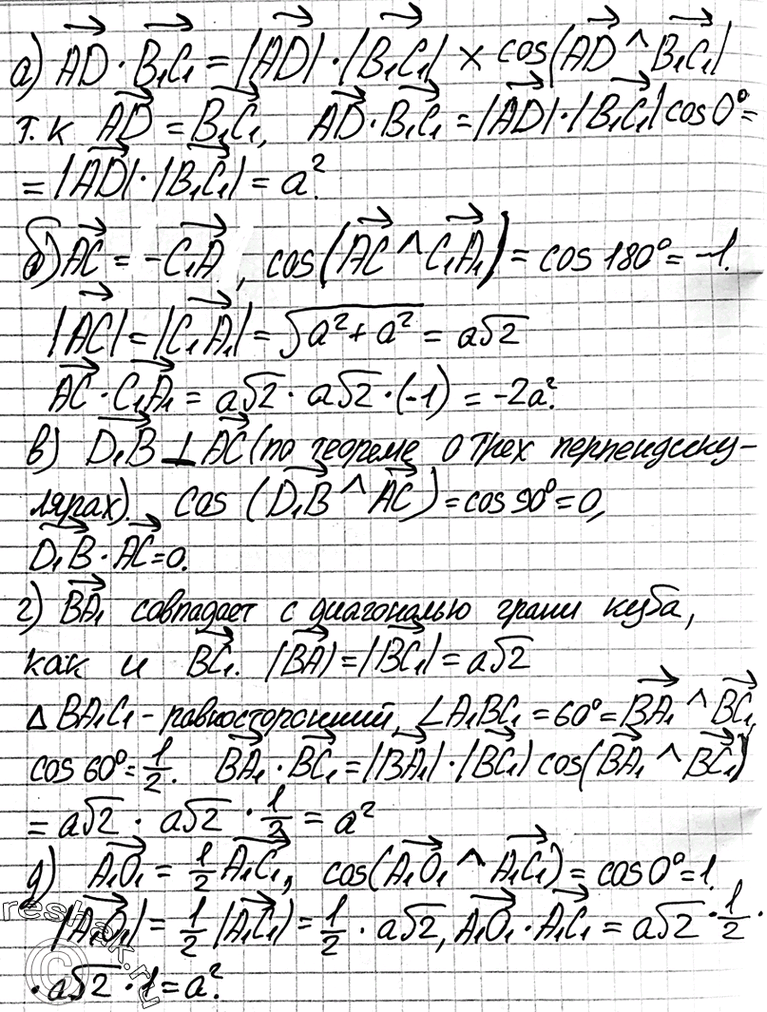 а) AD⃗ · B₁C₁⃗ = |AD⃗| · |B₁C₁⃗| × cos(AD⃗ ^ B₁C₁⃗)
т.к AD⃗ = B₁C₁⃗, AD⃗ · B₁C₁⃗ = |AD⃗| · |B₁C₁⃗| cos 0° =
= |AD⃗| · |B₁C₁⃗| = a².
б) AC⃗ = -C₁A⃗, cos(AC⃗ ^ C₁A₁⃗) = cos 180° = -1.
|AC⃗| = |C₁A₁⃗| = √(a² + a²) = a√2
AC⃗ · C₁A₁⃗ = a√2 · a√2 · (-1) = -2a².
в) D₁B⃗ ⊥ AC⃗ (по теореме о трех перпендику-
лярах) cos (D₁B⃗ ^ AC⃗) = cos 90° = 0,
D₁B⃗ · AC⃗ = 0.
г) BA₁⃗ совпадает с диагональю грани куба,
как и BC₁⃗. |BA⃗| = |BC₁⃗| = a√2
△ BA₁C₁ - равносторонний, ∠A₁BC₁ = 60° = BA₁⃗ ^ BC₁⃗,
cos 60° = 1/2. BA₁⃗ · BC₁⃗ = |BA₁⃗| · |BC₁⃗| cos(BA₁⃗ ^ BC₁⃗)
= a√2 · a√2 · 1/2 = a²
д) A₁O₁⃗ = 1/2 A₁C₁⃗, cos(A₁O₁⃗ ^ A₁C₁⃗) = cos 0° = 1.
|A₁O₁⃗| = 1/2 |A₁C₁⃗| = 1/2 · a√2, A₁O₁⃗ · A₁C₁⃗ = a√2 · 1/2 ·
· a√2 · 1 = a².
© reshak.ru